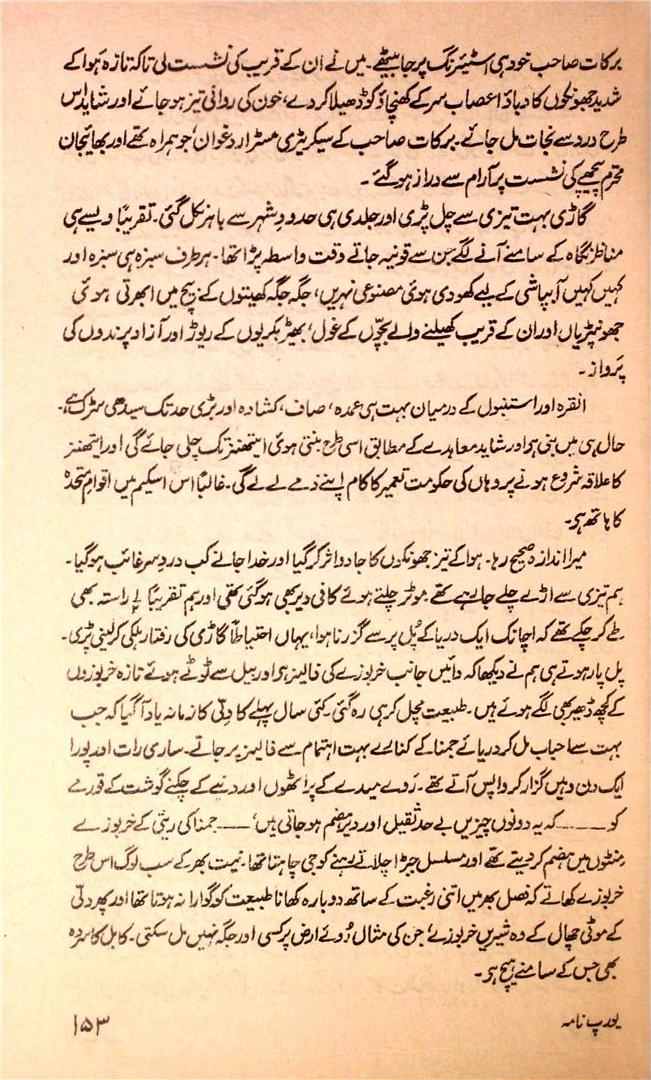 برکات صاحب خود ہی اسٹیئرنگ پر جا بیٹھے۔ میں نے ان کے قریب کی نشست لی تاکہ تازہ ہوا کے
شدید جھونکوں کا دباؤ اعصاب سر کے کھنچاؤ کو ڈھیلا کر دے، خون کی روانی تیز ہو جائے اور شاید اس
طرح درد سے نجات مل جائے۔ برکات صاحب کے سیکریٹری مسٹر اردغوان، جو ہمراہ تھے اور بھائیجان
محترم پیچھے کی نشست پر آرام سے دراز ہو گئے۔
گاڑی بہت تیزی سے چل پڑی اور جلدی ہی حدودِ شہر سے باہر نکل گئی۔ تقریباً ویسے ہی
مناظر نگاہ کے سامنے آنے لگے جن سے قونیہ جاتے وقت واسطہ پڑا تھا۔ ہر طرف سبزہ ہی سبزہ اور
کہیں کہیں آبپاشی کے لیے کھودی ہوئی مصنوعی نہریں، جگہ جگہ کھیتوں کے بیچ میں ابھرتی ہوئی
جھونپڑیاں اور ان کے قریب کھیلنے والے بچّوں کے غول، بھیڑ بکریوں کے ریوڑ اور آزاد پرندوں کی
پرواز۔
انقرہ اور استنبول کے درمیان بہت ہی عمدہ، صاف، کشادہ اور بڑی حد تک سیدھی سڑک ہے۔
حال ہی میں بنی ہے اور شاید معاہدے کے مطابق اسی طرح بنتی ہوئی ایتھنز تک چلی جائے گی اور ایتھنز
کا علاقہ شروع ہونے پر وہاں کی حکومت تعمیر کا کام اپنے ذمے لے لے گی۔ غالباً اس اسکیم میں اقوامِ متحدہ
کا ہاتھ ہے۔
میرا اندازہ صحیح رہا۔ ہوا کے تیز جھونکوں کا جادو اثر کر گیا اور خدا جانے کب دردِ سر غائب ہو گیا۔
ہم تیزی سے اڑے چلے جا رہے تھے۔ موٹر چلتے ہوئے کافی دیر بھی ہو گئی تھی اور ہم تقریباً راستہ بھی
طے کر چکے تھے کہ اچانک ایک دریا کے پُل پر سے گزرنا ہوا، یہاں احتیاطاً گاڑی کی رفتار ہلکی کر لینی پڑی۔
پل پار ہوتے ہی ہم نے دیکھا کہ دائیں جانب خربوزے کی فالیز ہے اور بیل سے ٹوٹے ہوئے تازہ خربوزوں
کے کچھ ڈھیر بھی لگے ہوئے ہیں۔ طبیعت مچل کر ہی رہ گئی۔ کئی سال پہلے کا دِلّی کا زمانہ یاد آ گیا کہ جب
بہت سے احباب مل کر دریائے جمنا کے کنارے بہت اہتمام سے فالیز پر جاتے۔ ساری رات اور پورا
ایک دن وہیں گزار کر واپس آتے تھے۔ رَوے میدے کے پراٹھوں اور دنبے کے چکنے گوشت کے قورمے
کو —— کہ یہ دونوں چیزیں بے حد ثقیل اور دیر ہضم ہو جاتی ہیں، —— جمنا کی ریتی کے خربوزے
منٹوں میں ہضم کر دیتے تھے اور مسلسل جبڑا چلاتے رہنے کو جی چاہتا تھا۔ نیت بھر کے سب لوگ اس طرح
خربوزے کھاتے کہ فصل بھر میں اتنی رغبت کے ساتھ دوبارہ کھانا طبیعت کو گوارا نہ ہوتا تھا اور پھر دلّی
کے موٹی چھال کے وہ شیریں خربوزے، جن کی مثال رُوئے ارض پر کسی اور جگہ نہیں مل سکتی۔ کابل کا سردہ
بھی جس کے سامنے ہیچ ہے۔
یورپ نامہ
۱۵۳